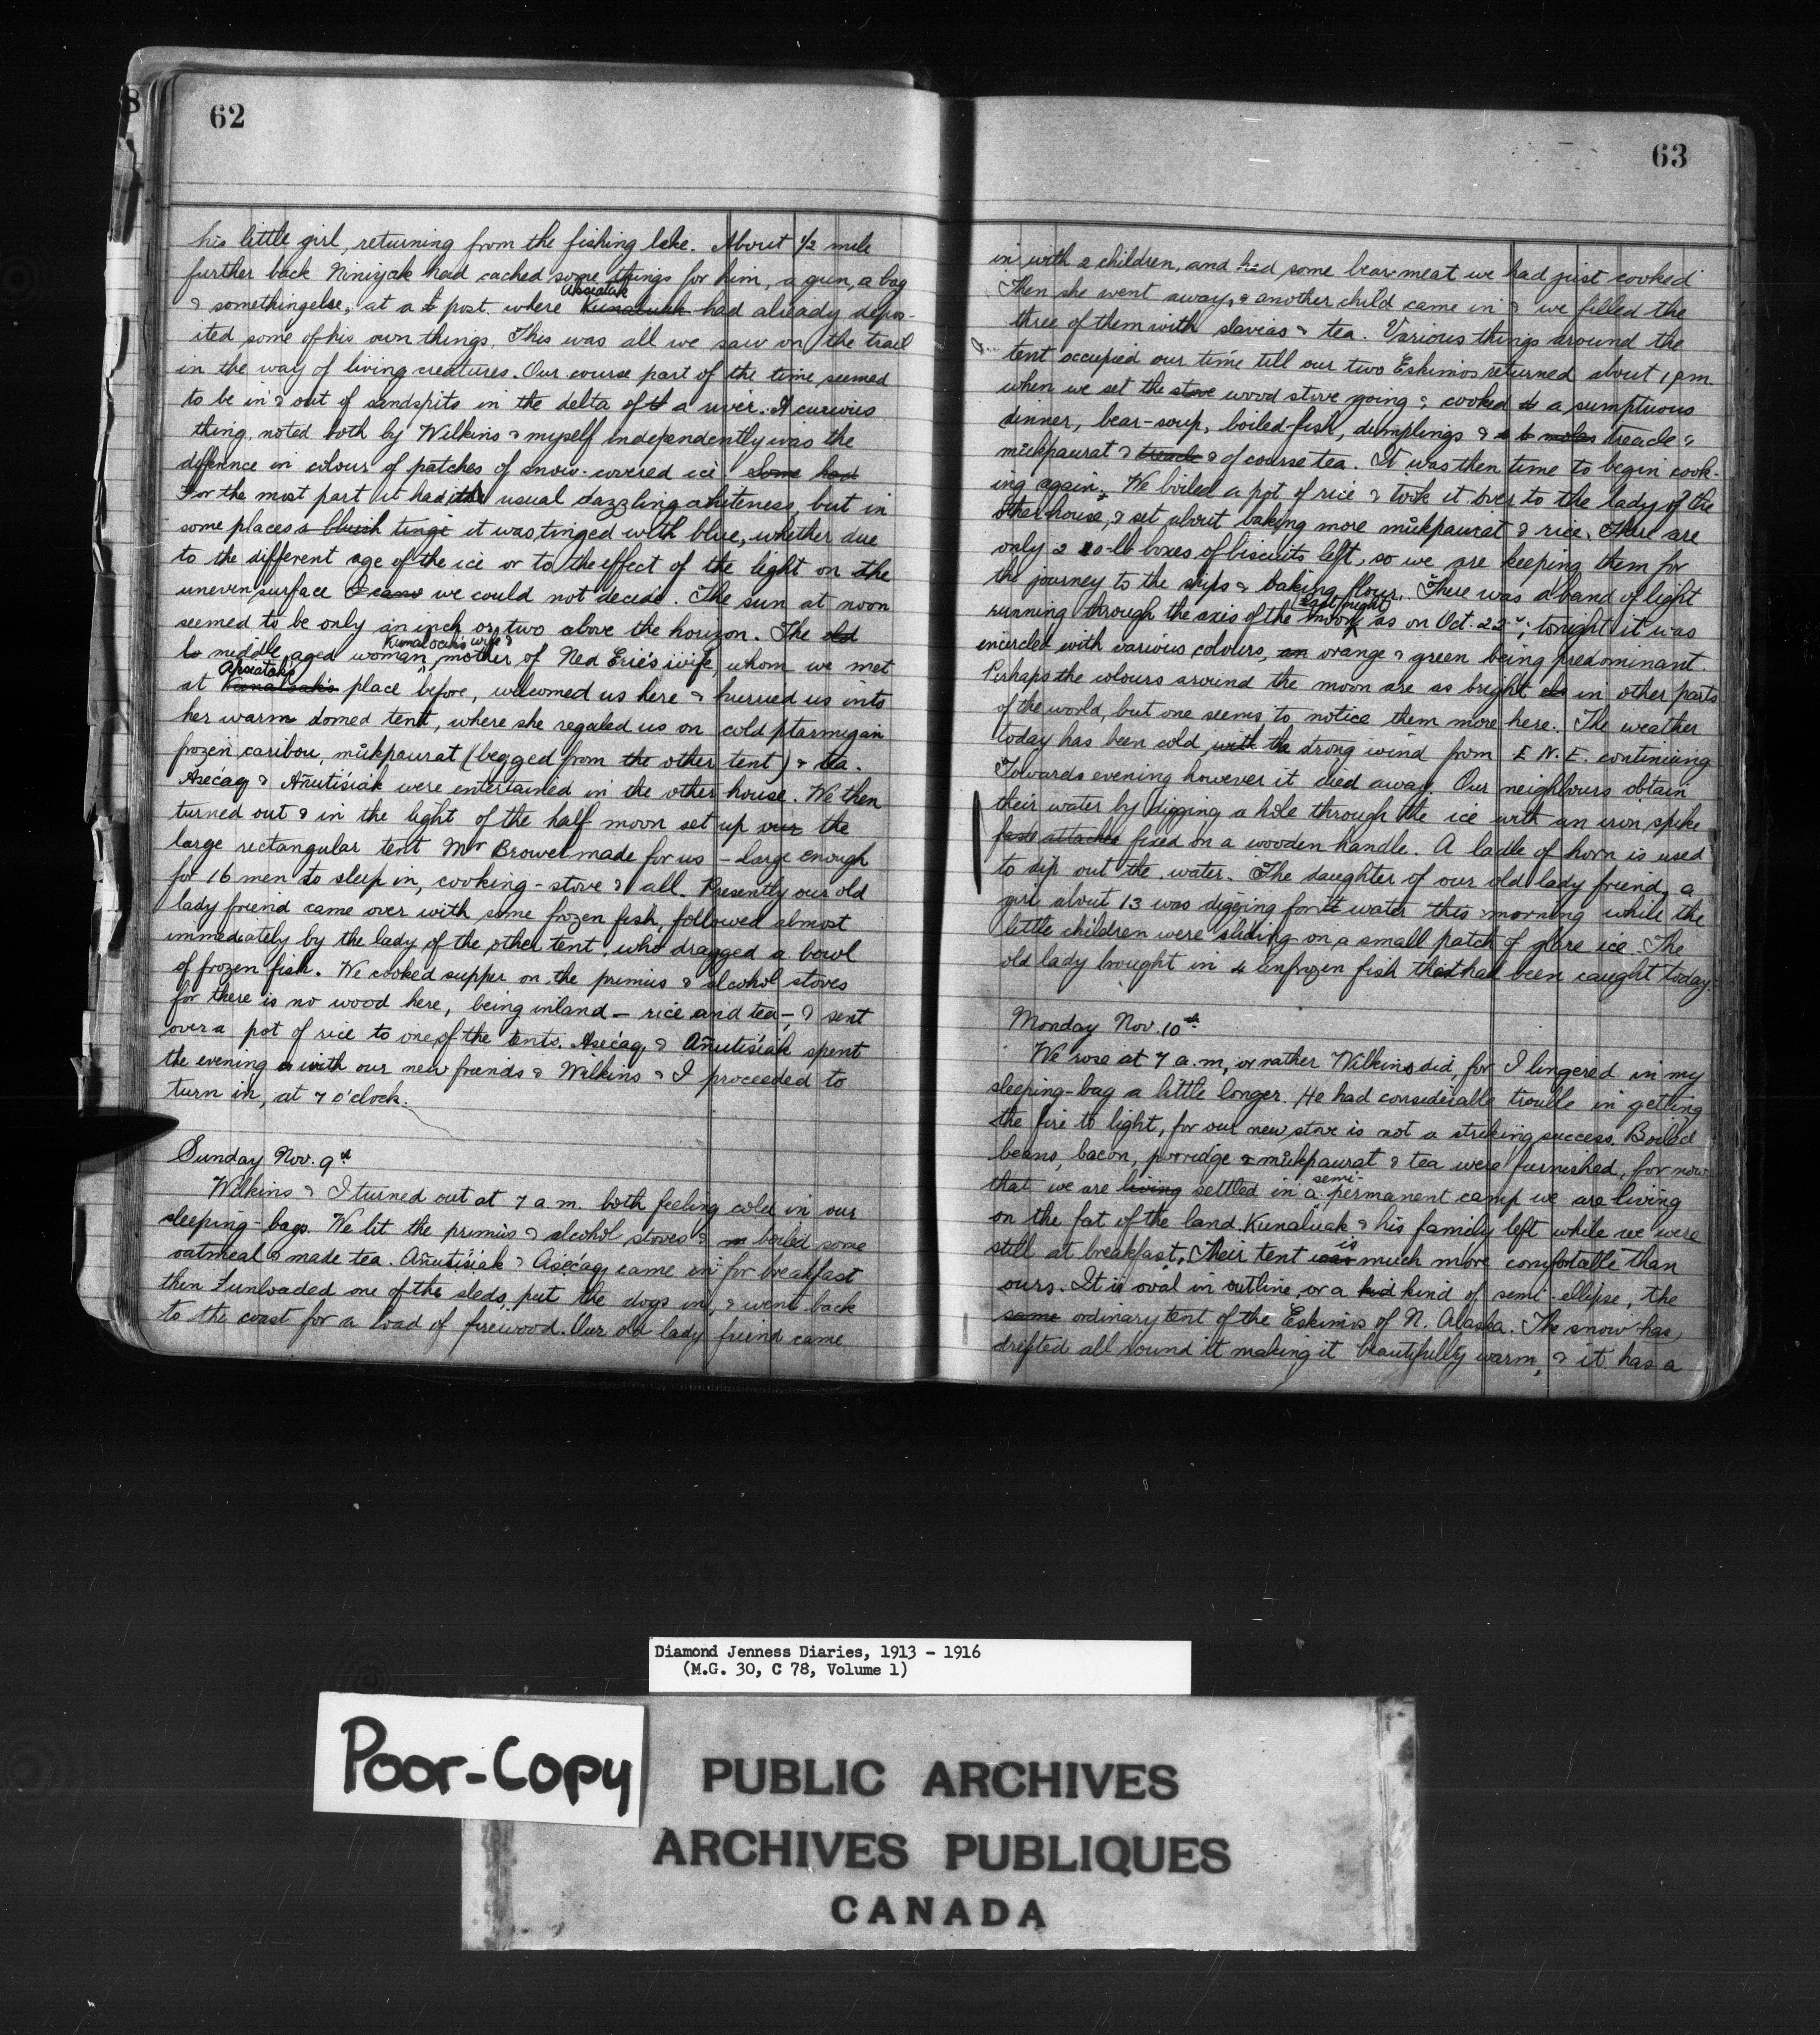 62
his little girl, returning from the fishing lake. About 1/2 mile
further back Niniyak had cached some things for him, a gun, a bag
Apsiatak
& something else, at a t post where Kunaluak had already depos-
ited some of his own things. This was all we saw on the trail
in the way of living creatures. Our course part of the time seemed
to be in & out of sandspits in the delta of t a river. A curious
thing noted both by Wilkins & myself independently was the
difference in colour of patches of snow-covered ice. Some had
For the most part it had its usual dazzling whiteness, but in
some places a bluish tinge it was tinged with blue, whether due
to the different age of the ice or to the effect of the light on the
uneven surface I can we could not decide. The sun at noon
seemed to be only an inch or two above the horizon. The old
Kunaloak's wife &
to middle aged woman, mother of Ned Erie's wife, whom we met
Apsiatak's
at Kunaloak's place before, welcomed us here & hurried us into
her warm domed tent, where she regaled us on cold ptarmigan
frozen caribou, mŭkpaurat (begged from the other tent) & tea.
Asecaq & Añutisiak were entertained in the other house. We then
turned out & in the light of the half moon set up our the
large rectangular tent Mr Brower made for us – large enough
for 16 men to sleep in, cooking-stove & all. Presently our old
lady friend came over with some frozen fish, followed almost
immediately by the lady of the other tent, who dragged a bowl
of frozen fish. We cooked supper on the primus & alcohol stoves
for there is no wood here, being inland – rice and tea –, & sent
over a pot of rice to one of the tents. Asecaq & Añutisiak spent
the evening with our new friends & Wilkins & I proceeded to
turn in, at 7 o'clock.
Sunday Nov. 9th
Wilkins & I turned out at 7 a.m. both feeling cold in our
sleeping-bags. We lit the primus & alcohol stoves & boiled some
oatmeal & made tea. Añutisiak & Asecaq came in for breakfast
then unloaded one of the sleds, put the dogs in, & went back
to the coast for a load of firewood. Our old lady friend came
63
in with 2 children, and had some bear-meat we had just cooked
Then she went away, & another child came in & we filled the
three of them with slavias & tea. Various things around the
tent occupied our time till our two Eskimos returned about 1 pm
when we set the stove wood stove going & cooked a sumptuous
dinner, bear-soup, boiled-fish, dumplings & molas treacle &
mŭkpaurat & treacle & of course tea. It was then time to begin cook-
ing again. We boiled a pot of rice & took it over to the lady of the
other house, & set about baking more mŭkpaurat & rice. There are
only 2 10-lb boxes of biscuits left, so we are keeping them for
the journey to the ships & baking flour. There was a band of light
last night
running through the axis of the moon as on Oct. 22nd; tonight it was
encircled with various colours, an orange & green being predominant.
Perhaps the colours around the moon are as bright in other parts
of the world, but one seems to notice them more here. The weather
today has been cold, with the strong wind from E N. E. continuing
Towards evening however it died away. Our neighbours obtain
their water by digging a hole through the ice with an iron spike
attached fixed on a wooden handle. A ladle of horn is used
to dip out the water. The daughter of our old lady friend, a
girl about 13 was digging for water this morning while the
little children were sliding on a small patch of glare ice. The
old lady brought in 4 unfrozen fish that had been caught today.
Monday Nov. 10th
We rose at 7 a.m, or rather Wilkins did, for I lingered in my
sleeping-bag a little longer. He had considerable trouble in getting
the fire to light, for our new stove is not a striking success. Boiled
beans, bacon, porridge & mŭkpaurat & tea were furnished, for now
semi-
that we are living settled in a permanent camp we are living
on the fat of the land. Kunaluak & his family left while we were
is
still at breakfast. Their tent was much more comfortable than
ours. It is oval in outline, or a kid kind of semi-ellipse, the
same ordinary tent of the Eskimos of N. Alaska. The snow has
drifted all round it making it beautifully warm, & it has a
Diamond Jenness Diaries, 1913 - 1916
(M.G. 30, C 78, Volume 1)
Poor-Copy
PUBLIC ARCHIVES
ARCHIVES PUBLIQUES
CANADA